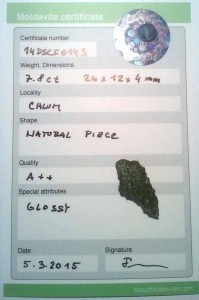 Moldavite certificate
Certificate number
14DSCF0143
Weight, Dimensions
7.8ct 26x12x4mm
Locality
CHLUM
Shape
NATURAL PIECE
Quality
A++
Special attributes
GLOSSY
Date
Signature
5.3.2015